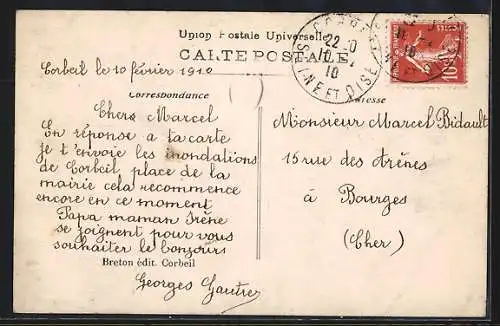 Union Postale Universelle
CARTE POSTALE
Corbeil le 10 février 1910
Correspondance
Adresse
Chers Marcel
En réponse a ta carte
je t'envoie les inondations
de Corbeil place de la
mairie cela recommence
encore en ce moment
Papa maman Irène
se joignent pour vous
souhaiter le bonjours
Breton édit. Corbeil
Georges Gautier
Monsieur Marcel Bidault
15 rue des Arènes
à Bourges
(Cher)
22-0
10
10
NE ET OISE
10